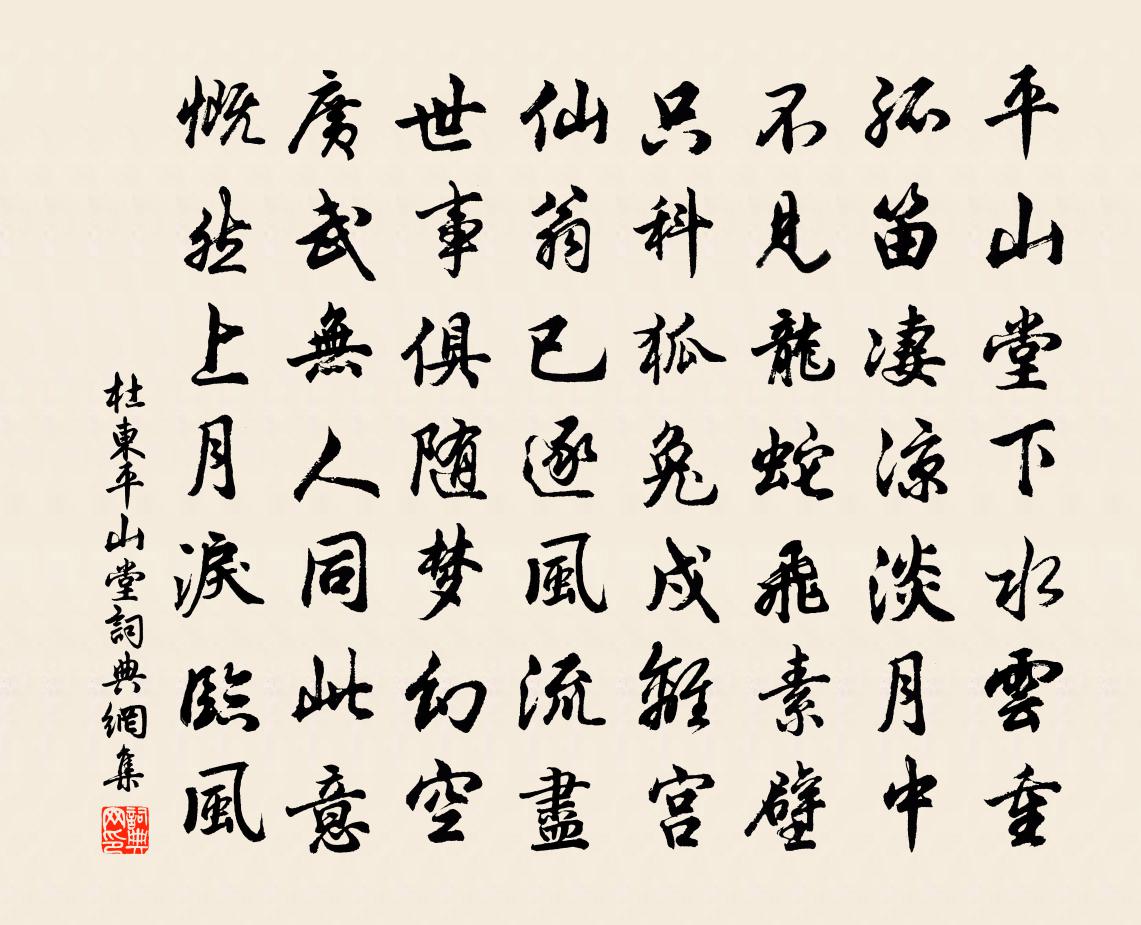 平山堂下水雲重
孤笛凄涼淡月中
不見龍蛇飛素壁
只科狐兔戍離宫
仙翁已逐風流盡
世事俱随梦幻空
廣武無人同此意
慨然上月淚臨風
杜東平山堂詞典網集
詞典网印